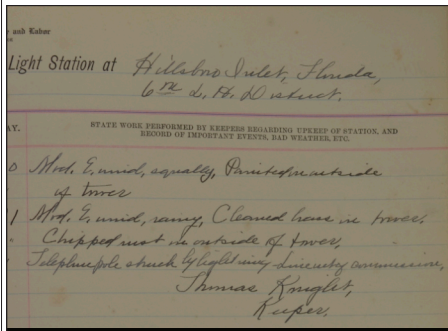 and Labor
Light Station at Hillsboro Inlet, Florida,
6th L. H. District.
AY.
STATE WORK PERFORMED BY KEEPERS REGARDING UPKEEP OF STATION, AND
RECORD OF IMPORTANT EVENTS, BAD WEATHER, ETC.
0 Mod. E. wind, squally, Painted on outside
of tower
1 Mod. E. wind, rainy, Cleaned brass in tower.
Chipped rust on outside of tower.
Telephone pole struck by lightning commission,
Thomas Knight,
Keeper.